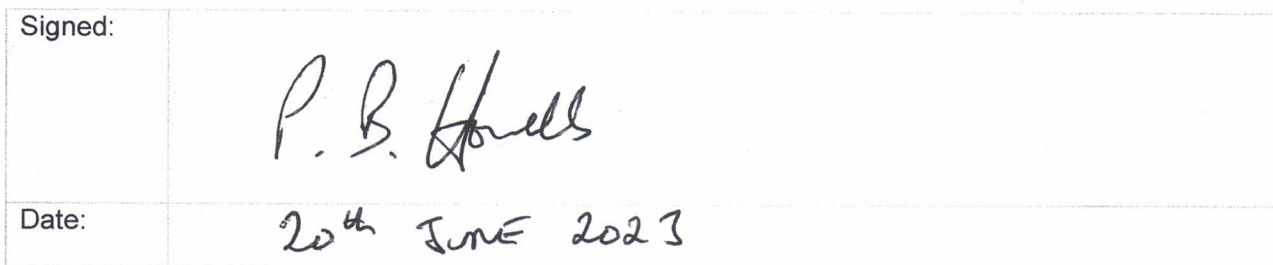 Signed:
P. B. Howells
Date:
20th JUNE 2023